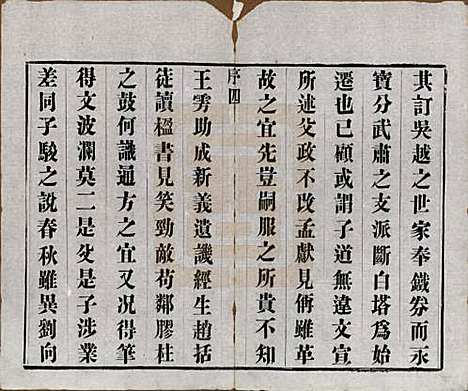 其訂吳越之世家奉鐵券而永
寶分武肅之支派斷白塔為始
遷也已顧或謂子道無違文宣
所述父政不改孟獻見傳雖革
故之宜先豈嗣服之所貴不知
序四
王雱助成新義遺譏經生趙括
徒讀楹書見笑勁敵苟鄰膠柱
之鼓何識通方之宜又況得筆
得文波瀾莫二是父是子涉業
差同子駿之說春秋雖異劉向